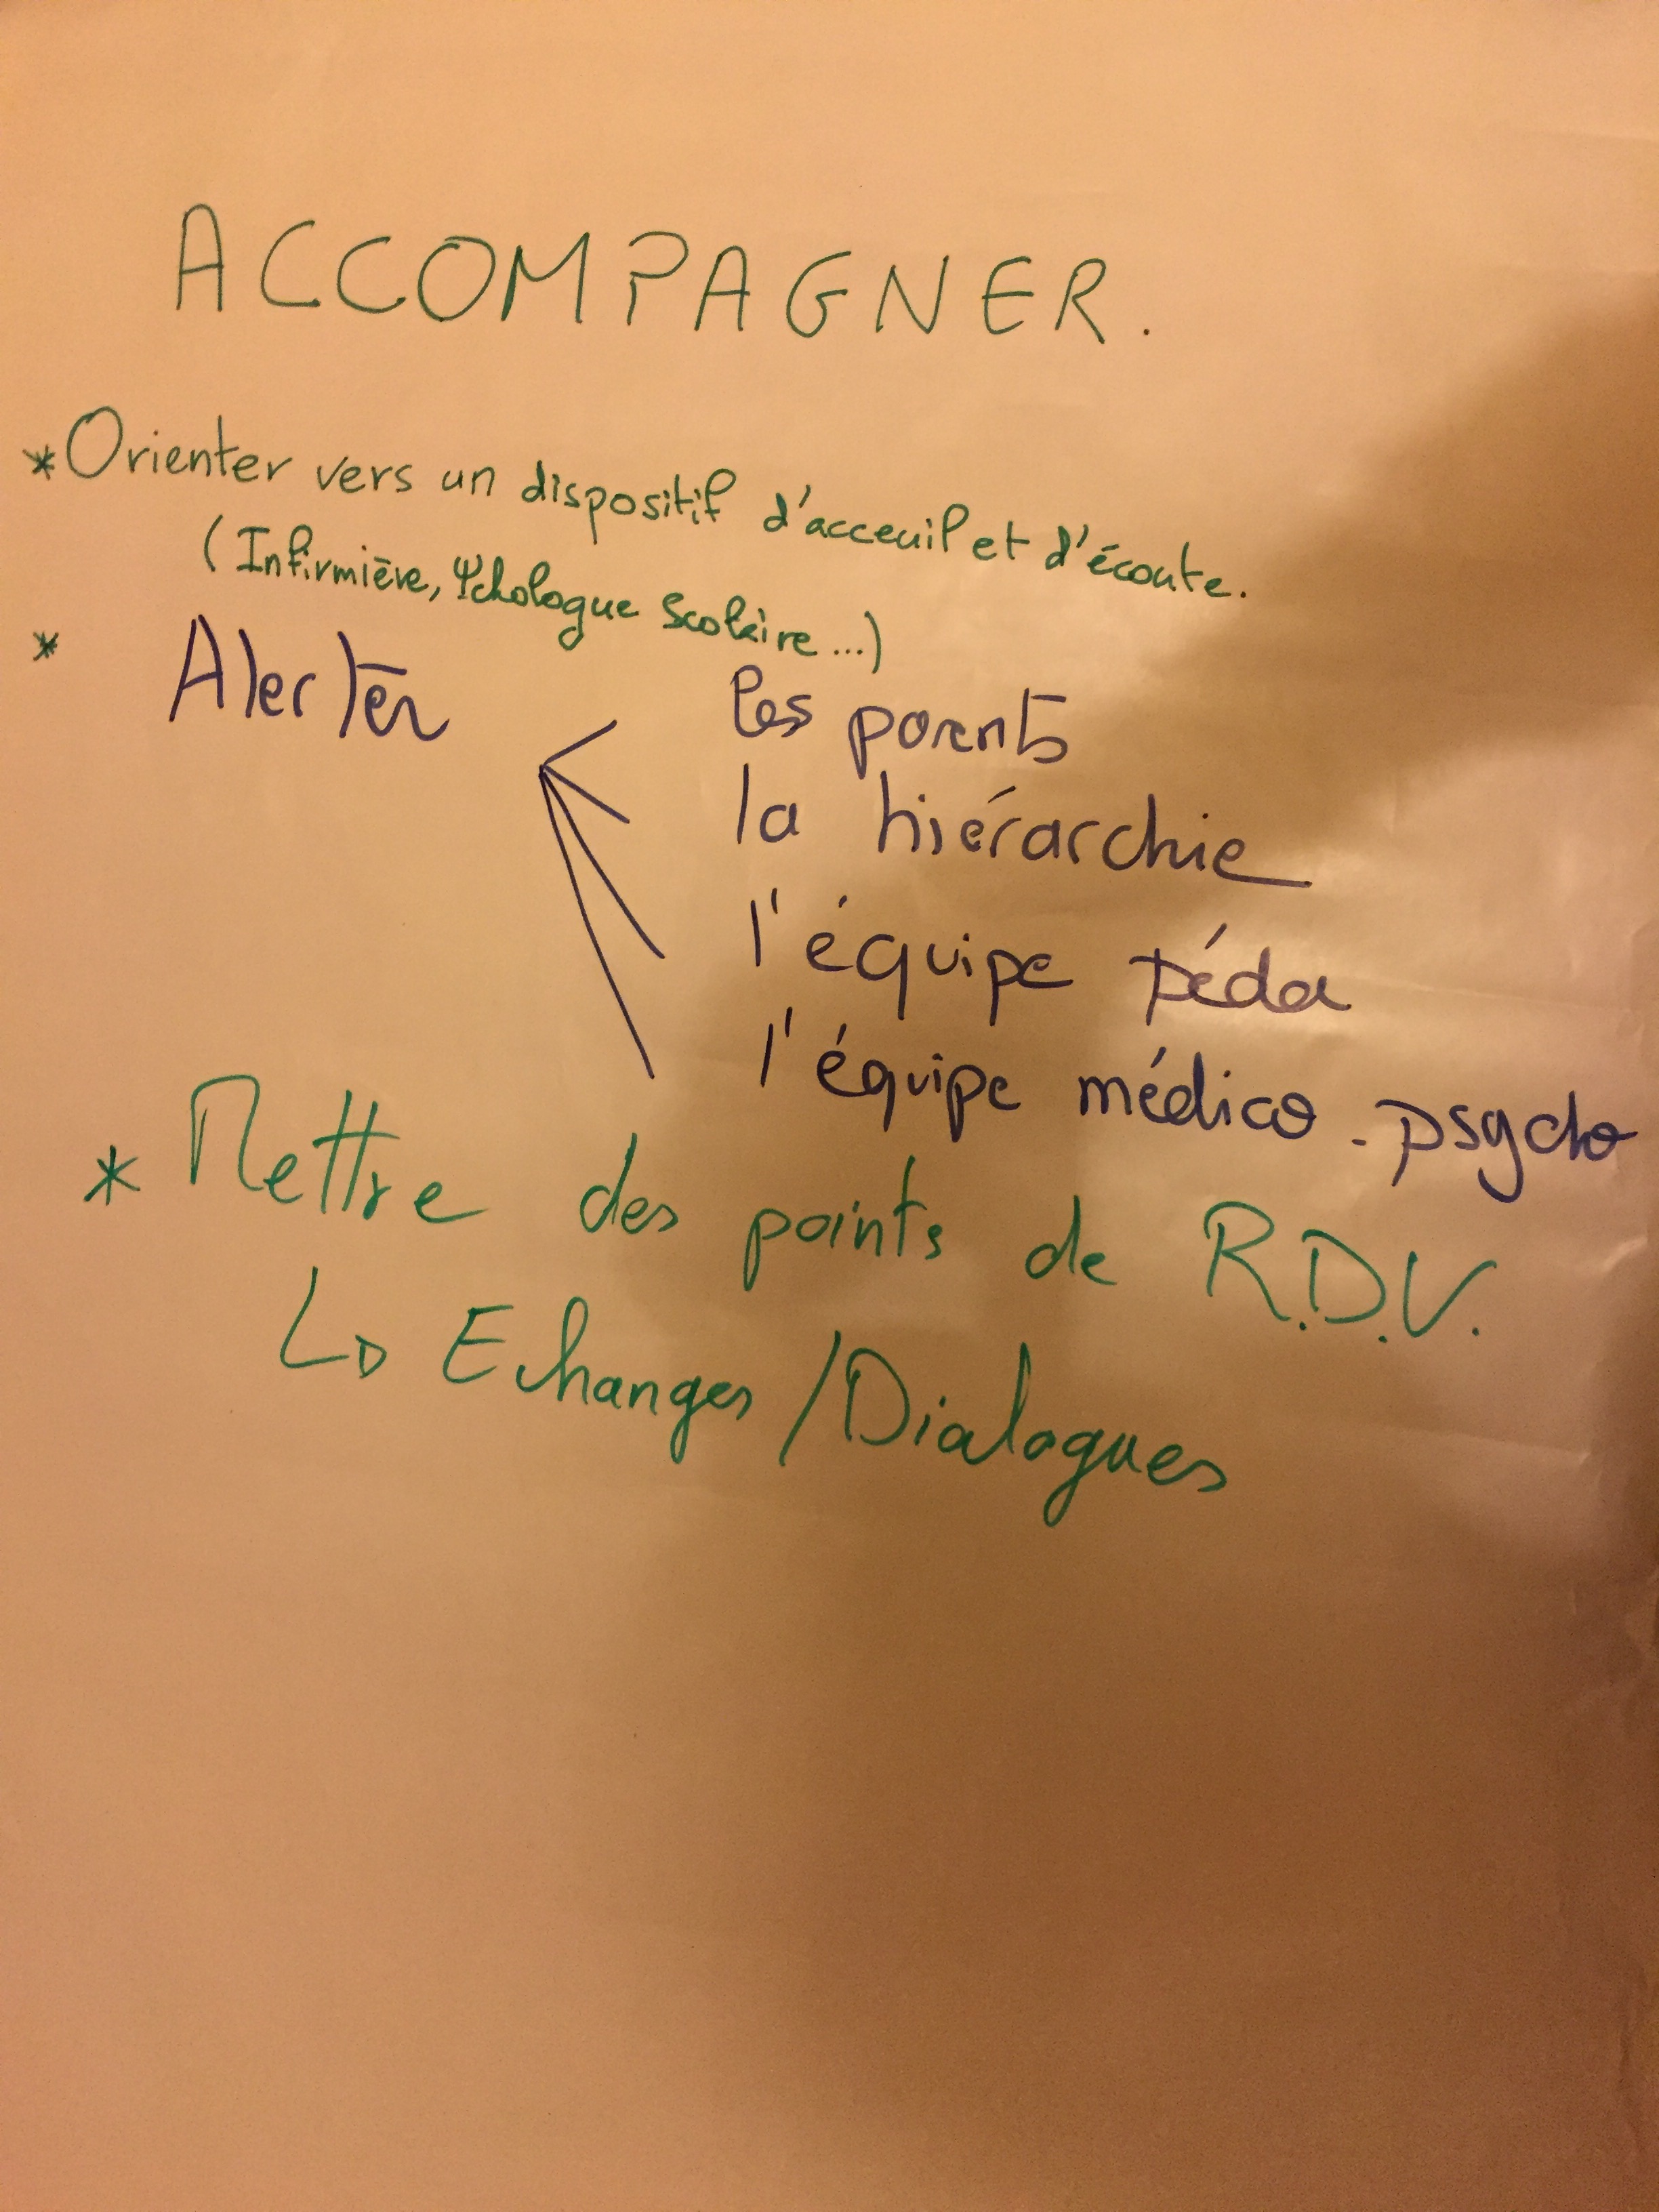 ACCOMPAGNER.
* Orienter vers un dispositif d'acceuil et d'écoute.
(Infirmière, Ψchologue Scolaire ...)
* Alerter
les parents
la hiérarchie
l'équipe péda
l'équipe médico-psycho
* Mettre des points de R.D.V.
↳ Echanges / Dialogues